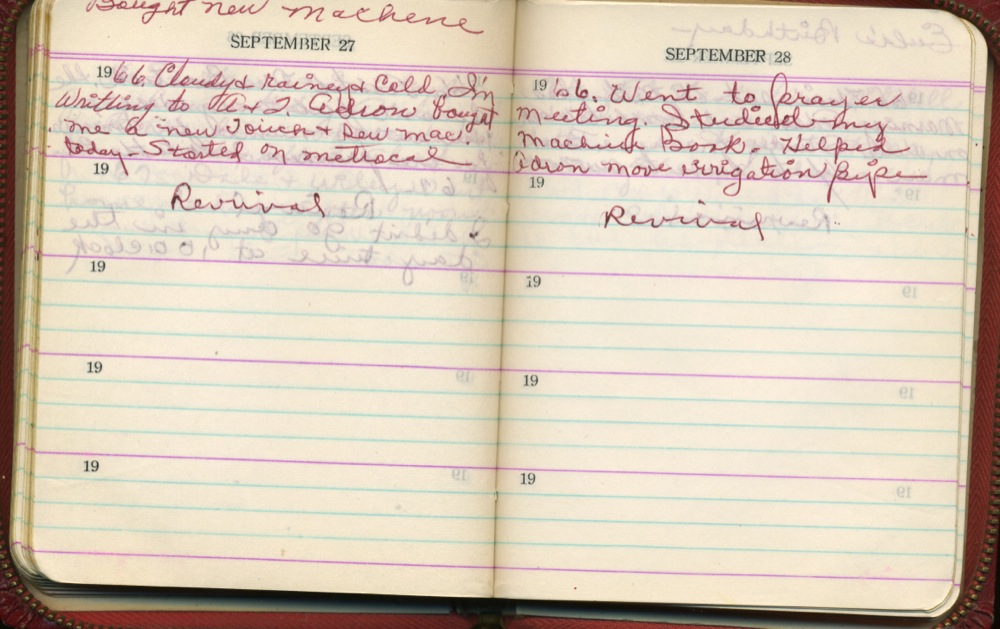 Bought new machene
SEPTEMBER 27
1966. Cloudy & rainey & Cold. I'm
Writting to A & J. bought
me a new Touch & Sew mac.
today - Started on mettocal
19
Revival
19
19
19
SEPTEMBER 28
1966. Went to prayer
meeting. Studied my
machine Book. Helped
move irrigation pipe
19
Revival
19
19
19